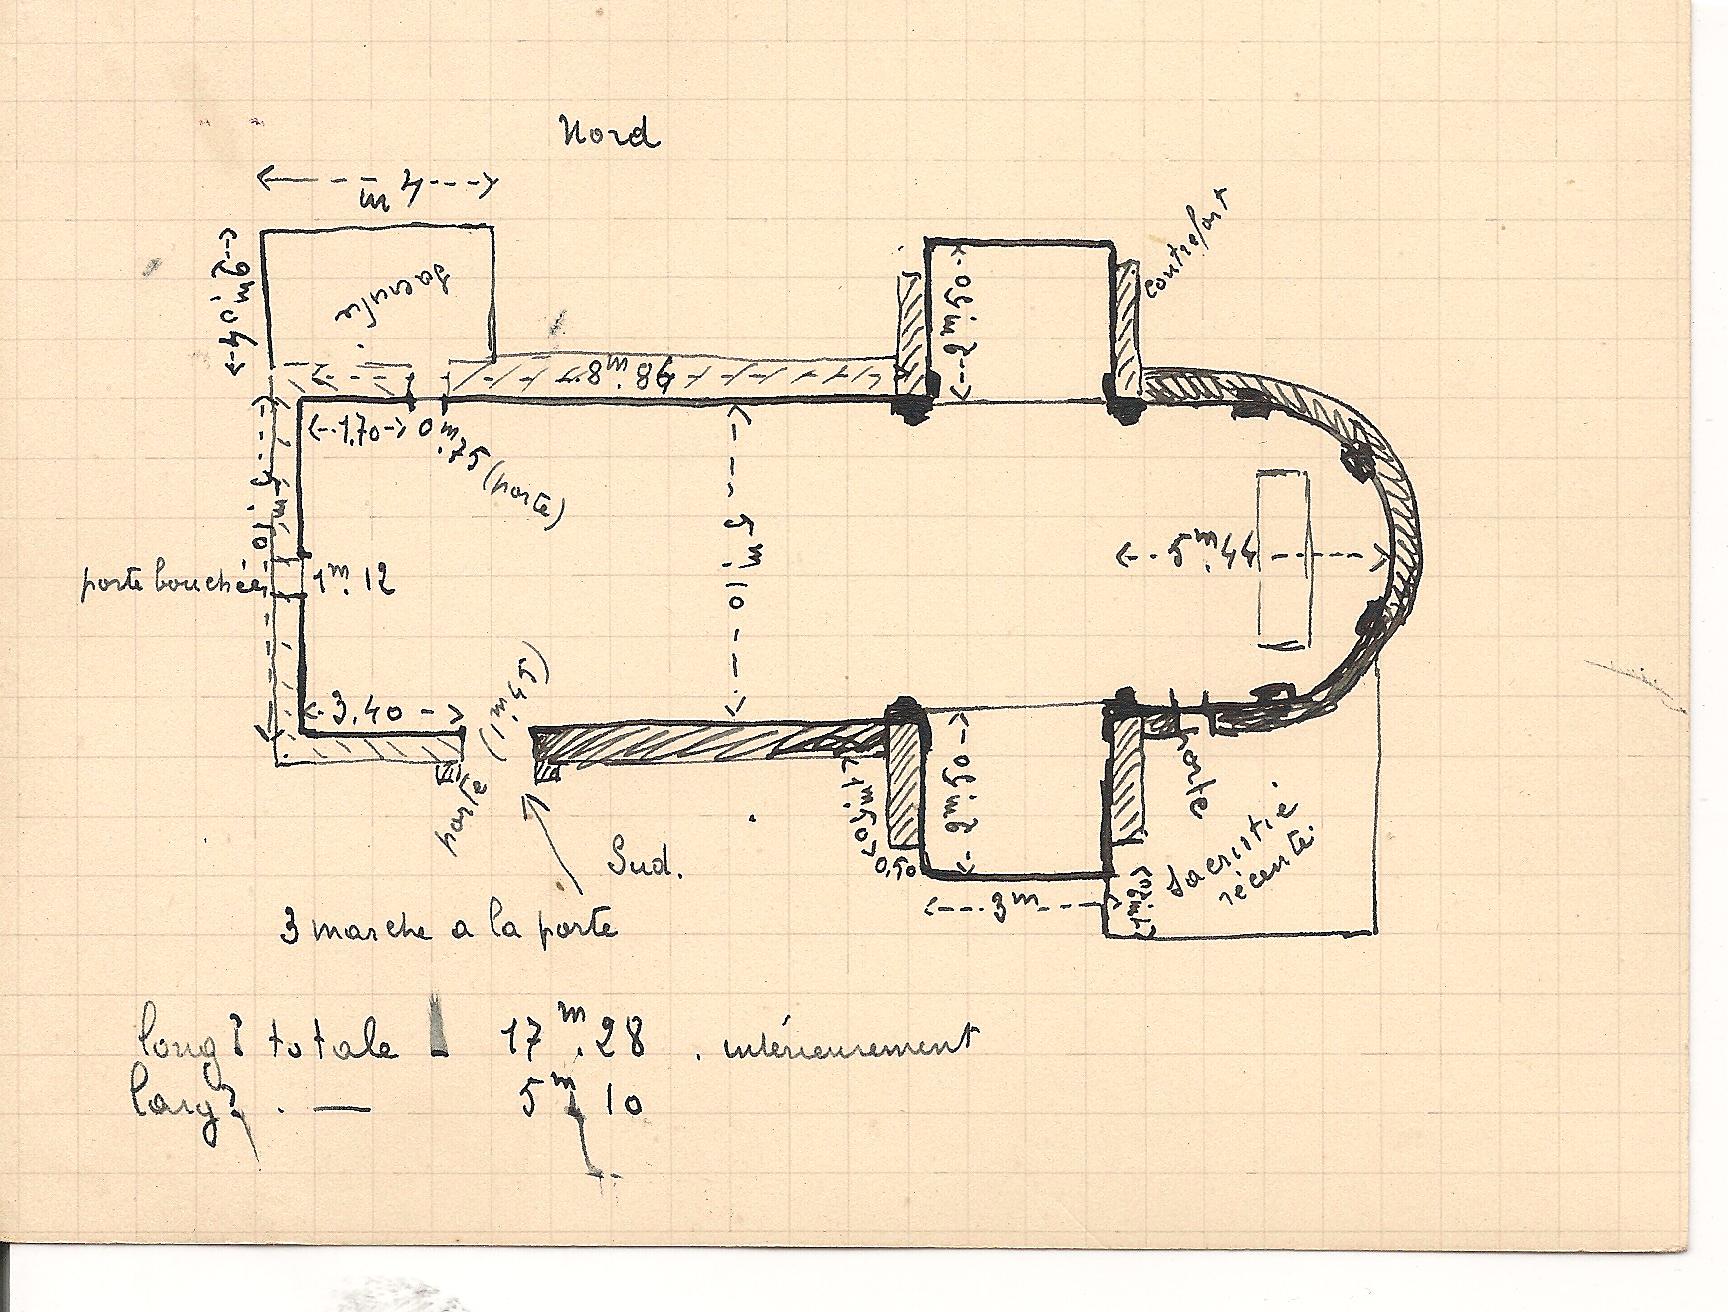 Nord
4 m
2 m. 04
Sacristie
contrefort
8 m. 84
2 m. 60
1.70
0 m. 75 (porte)
5 m. 10
5 m. 10
5 m. 44
porte bouchée
1 m. 12
3.40
porte (1 m. 45)
1 m. 50
0,50
2 m. 60
porte
Sud.
3 m
1 m. 20
Sacristie
récente.
3 marche a la porte
longr totale 17 m. 28 . intérieurement
largr . — 5 m 10